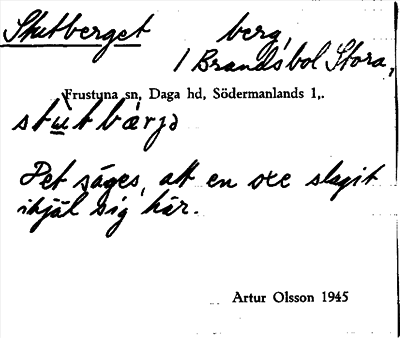 Stutberget berg,
1 Brandsbol Stora,
Frustuna sn, Daga hd, Södermanlands l,.
stùtbærjə
Det säges, att en oxe slagit
ihjäl sig här.
Artur Olsson 1945